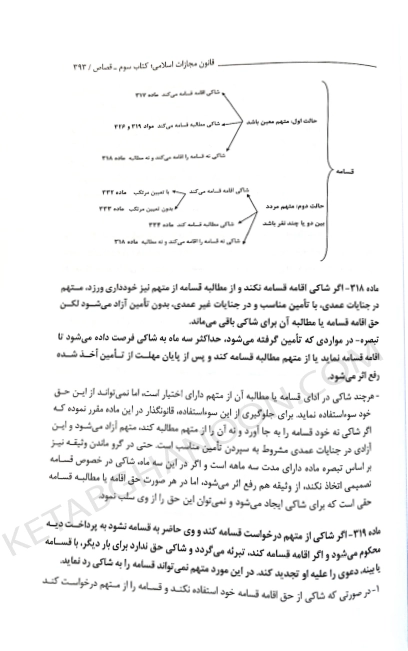 قانون مجازات اسلامی؛ کتاب سوم ـ قصاص / ۳۹۳
شاکی اقامه قسامه می‌کند ماده ۳۱۷
حالت اول: متهم معین باشد
شاکی مطالبه قسامه می‌کند مواد ۳۱۹ و ۳۲۶
شاکی نه قسامه را اقامه می‌کند و نه مطالبه ماده ۳۱۸
قسامه
شاکی اقامه قسامه می‌کند
با تعیین مرتکب ماده ۳۳۲
بدون تعیین مرتکب ماده ۳۳۳
حالت دوم: متهم مردد
بین دو یا چند نفر باشد
شاکی مطالبه قسامه کند ماده ۳۳۴
شاکی نه قسامه را اقامه می‌کند و نه مطالبه ماده ۳۱۸
ماده ۳۱۸- اگر شاکی اقامه قسامه نکند و از مطالبه قسامه از متهم نیز خودداری ورزد، متهم
در جنایات عمدی، با تأمین مناسب و در جنایات غیر عمدی، بدون تأمین آزاد می‌شود لکن
حق اقامه قسامه یا مطالبه آن برای شاکی باقی می‌ماند.
تبصره- در مواردی که تأمین گرفته می‌شود، حداکثر سه ماه به شاکی فرصت داده می‌شود تا
اقامه قسامه نماید یا از متهم مطالبه قسامه کند و پس از پایان مهلت از تأمین أخذ شده
رفع اثر می‌شود.
- هرچند شاکی در ادای قسامه یا مطالبه آن از متهم دارای اختیار است، اما نمی‌تواند از این حق
خود سوءاستفاده نماید. برای جلوگیری از این سوءاستفاده، قانونگذار در این ماده مقرر نموده که
اگر شاکی نه خود قسامه را به جا آورد و نه آن را از متهم مطالبه کند، متهم آزاد می‌شود و این
آزادی در جنایات عمدی مشروط به سپردن تأمین مناسب است. حتی در گرو ماندن وثیقه نیز
بر اساس تبصره ماده دارای مدت سه ماهه است و اگر در این سه ماه، شاکی در خصوص قسامه
تصمیمی اتخاذ نکند، از وثیقه هم رفع اثر می‌شود، اما در هر صورت حق اقامه یا مطالبه قسامه
حقی است که برای شاکی ایجاد می‌شود و نمی‌توان این حق را از وی سلب نمود.
ماده ۳۱۹- اگر شاکی از متهم درخواست قسامه کند و وی حاضر به قسامه نشود به پرداخت دیه
محکوم می‌شود و اگر اقامه قسامه کند، تبرئه می‌گردد و شاکی حق ندارد برای بار دیگر، با قسامه
یا بینه، دعوی را علیه او تجدید کند. در این مورد متهم نمی‌تواند قسامه را به شاکی رد نماید.
۱- در صورتی که شاکی از حق اقامه قسامه خود استفاده نکند و قسامه را از متهم درخواست کند